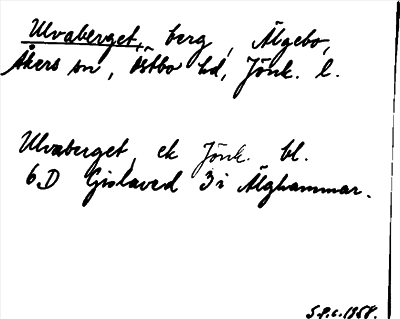 Ulvaberget, berg, Älgebo,
Åkers sn, Östbo hd, Jönk. l.
Ulvaberget, ek Jönk. bl.
6D Gislaved 3i Älghammar.
S.P.C. 1958.